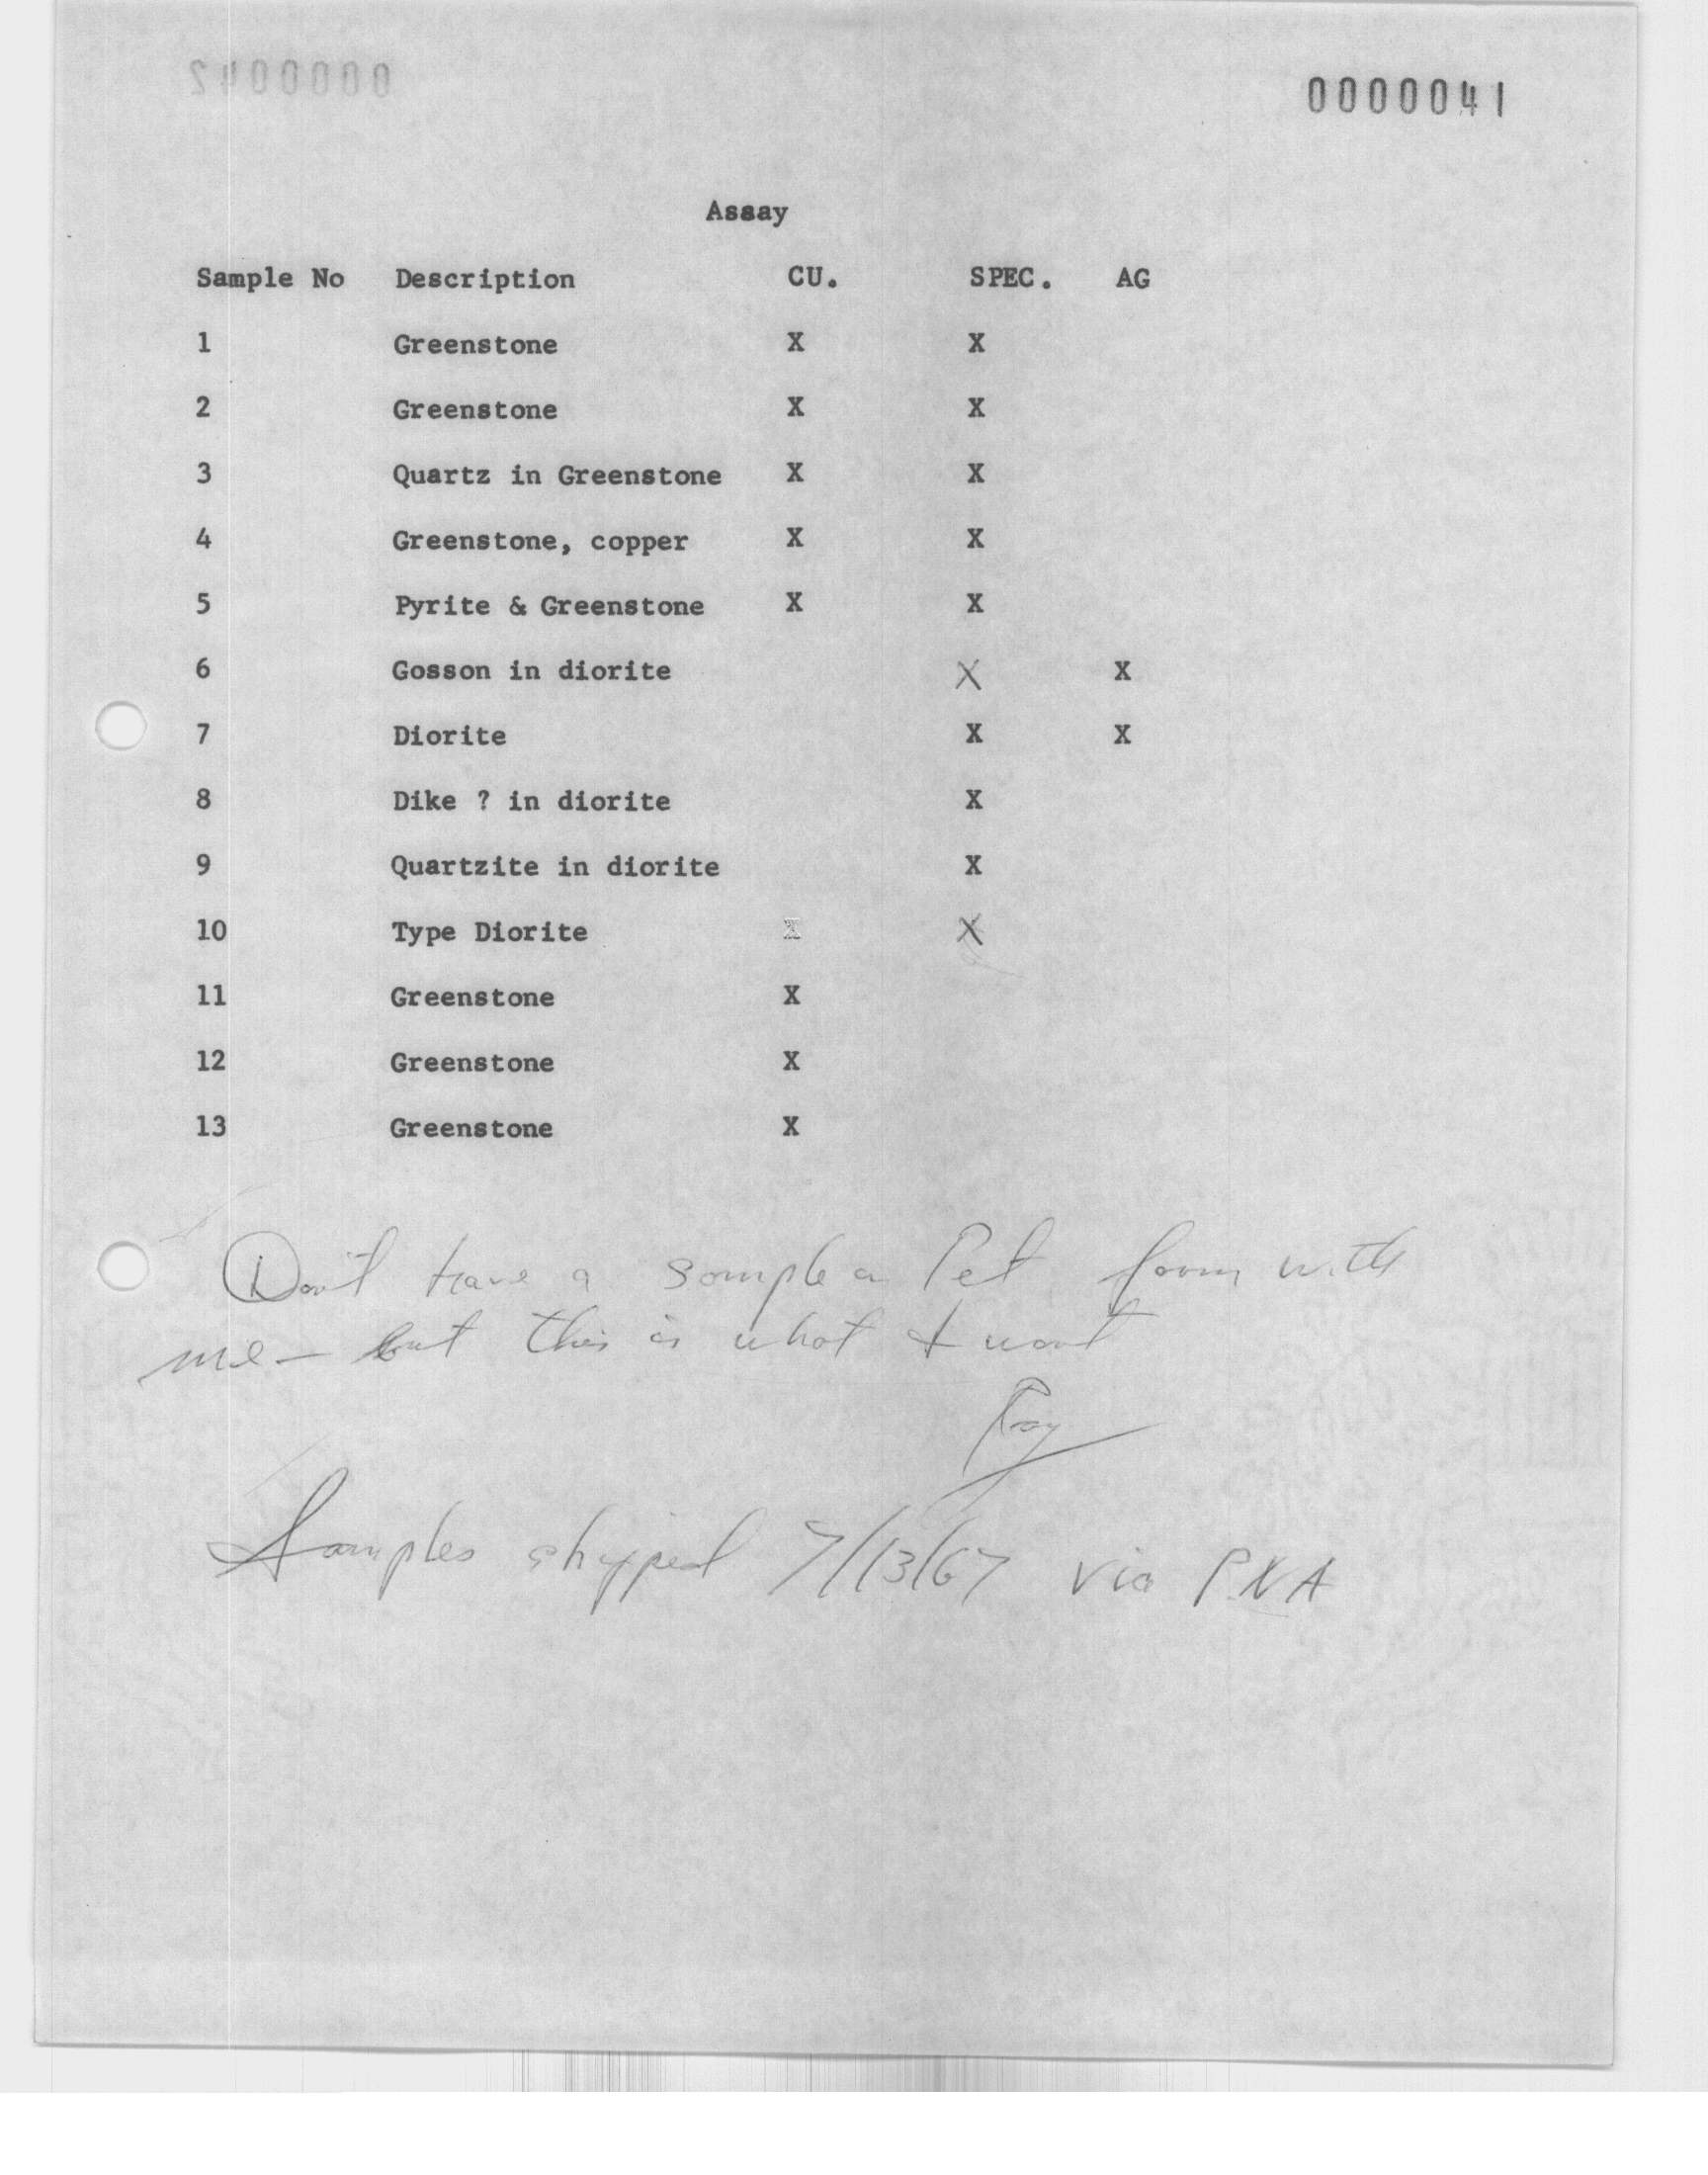 0000042
0000041
Assay
Sample No Description CU. SPEC. AG
1 Greenstone X X
2 Greenstone X X
3 Quartz in Greenstone X X
4 Greenstone, copper X X
5 Pyrite & Greenstone X X
6 Gosson in diorite X X
7 Diorite X X
8 Dike ? in diorite X
9 Quartzite in diorite X
10 Type Diorite X X
11 Greenstone X
12 Greenstone X
13 Greenstone X
Don't have a sample or Pet form with
me - but this is what I want
Ray
Samples shipped 7/13/67 via PNA